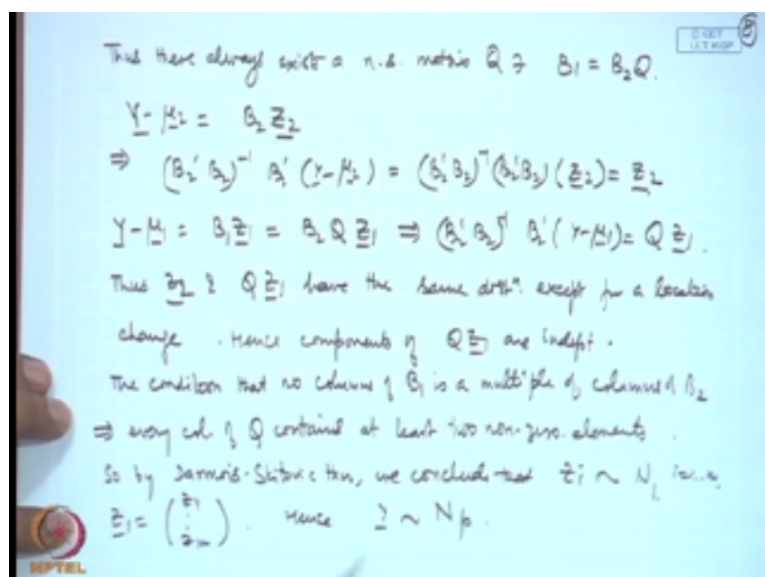 Thus there always exist a n.s. matrix Q ∋ B₁ = B₂Q.
Y - μ₂ = B₂ Z₂
⇒ (B₂' B₂)⁻¹ B₂' (Y-μ₂) = (B₂'B₂)⁻¹ (B₂'B₂) (Z₂) = Z₂
Y-μ₁ = B₁Z₁ = B₂ Q Z₁ ⇒ (B₂' B₂)⁻¹ B₂' (Y-μ₁) = Q Z₁.
Thus Z₂ & Q Z₁ have the same distⁿ. except for a location
change. Hence components of QZ₁ are indept.
The condition that no column of B₁ is a multiple of columns of B₂
⇒ every col. of Q contains at least two non-zero elements.
So by Darmois-Skitovic thm, we conclude that Zi ~ N₁
Z₁ = (Z₁ ⋮ Zm). Hence Y ~ Np.
8
I.I.T. KGP
NPTEL